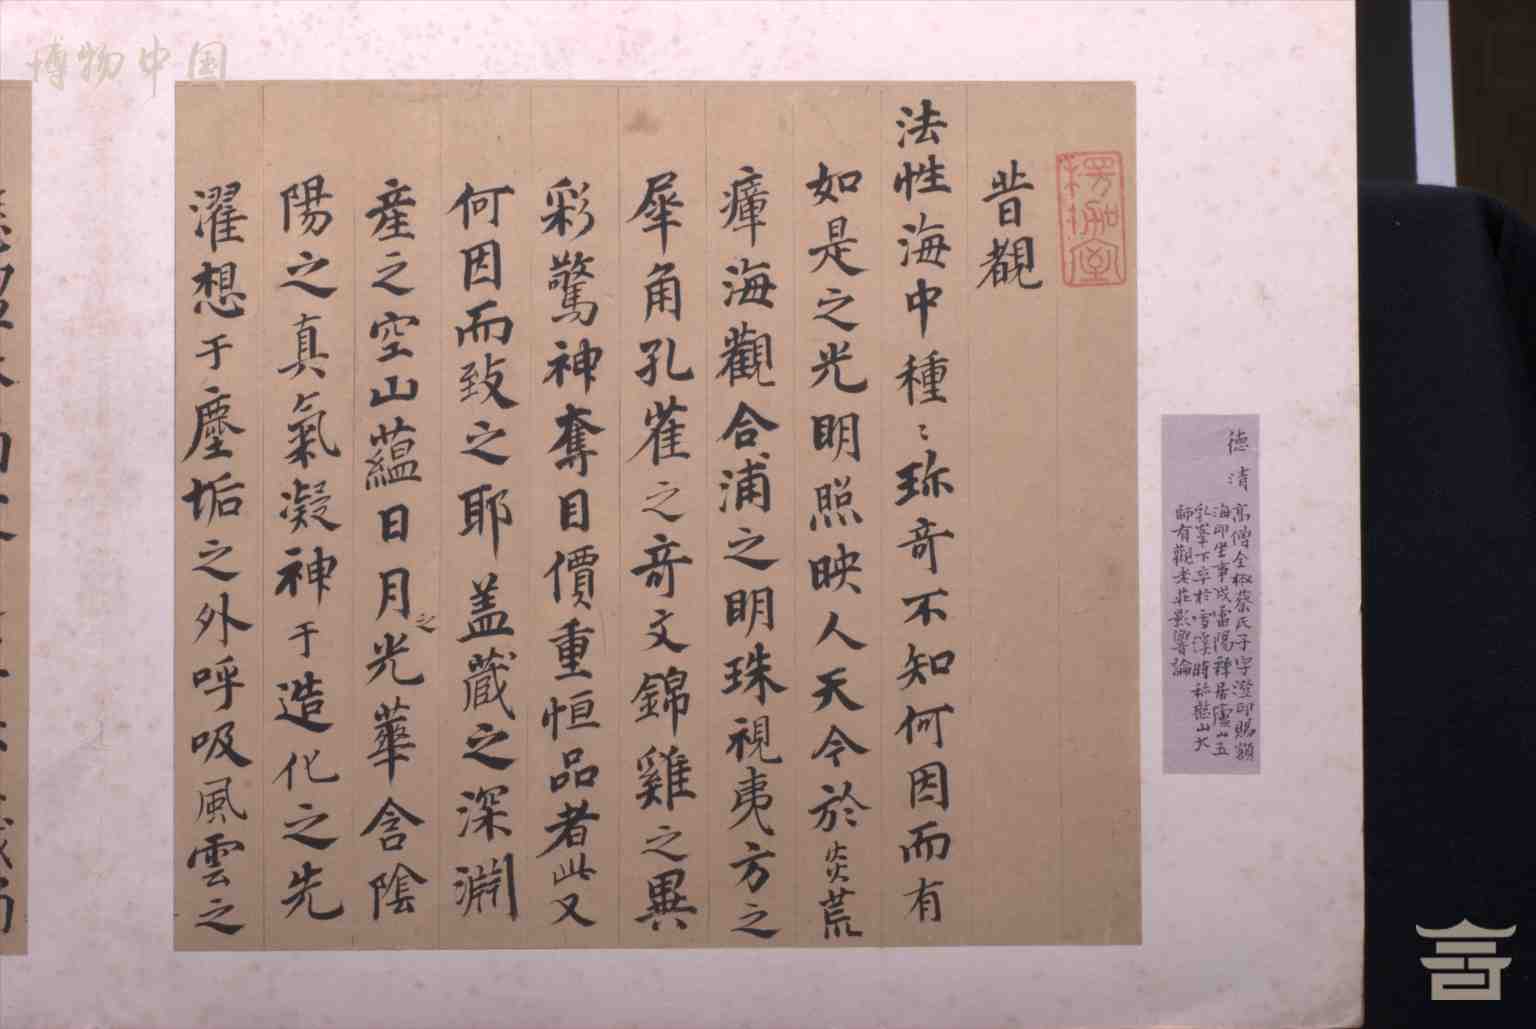 博物中国
楞伽室
德清
高僧全椒蔡氏子字澄印賜額
海印坐事戍雷陽釋居廬山五
乳峯下卒於曹溪時称憨山大
師有觀老莊影響論
昔觀
法性海中種〻珎奇不知何因而有
如是之光明照映人天今於炎荒
瘴海觀合浦之明珠視夷方之
犀角孔雀之奇文錦雞之異
彩驚神奪目價重恒品者此又
何因而致之耶蓋藏之深淵
産之空山蘊日月之光華含陰
陽之真氣凝神于造化之先
濯想于塵垢之外呼吸風雲之